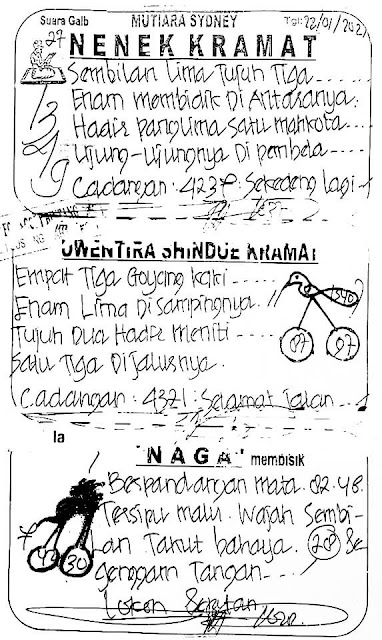 Suara Gaib MUTIARA SYDNEY Tgl: 22/01/202
27
NENEK KRAMAT
Sembilan Lima Tujuh Tiga....
Enam membidik Di Antaranya:
Hadir panglima satu mahkota
Ujung-Ujungnya Di pembela----
Cadangan: 4237
lagi
UWENTIRA SHINDUE KRAMAT
Empat Tiga Goyang kaki----
Enam Lima Di Sampingnya.
Tujuh Dua Hadir meniti----
Satu Tiga Di Jalurnya.
87 97
Cadangan: 4371: Selamat Jalan
Ia
'NAGA' membisik
Berpandangan mata. 02.48.
Tersipu malu. Wajah Sembi-
lan Takut bahaya. 28
genggam Tangan---
30